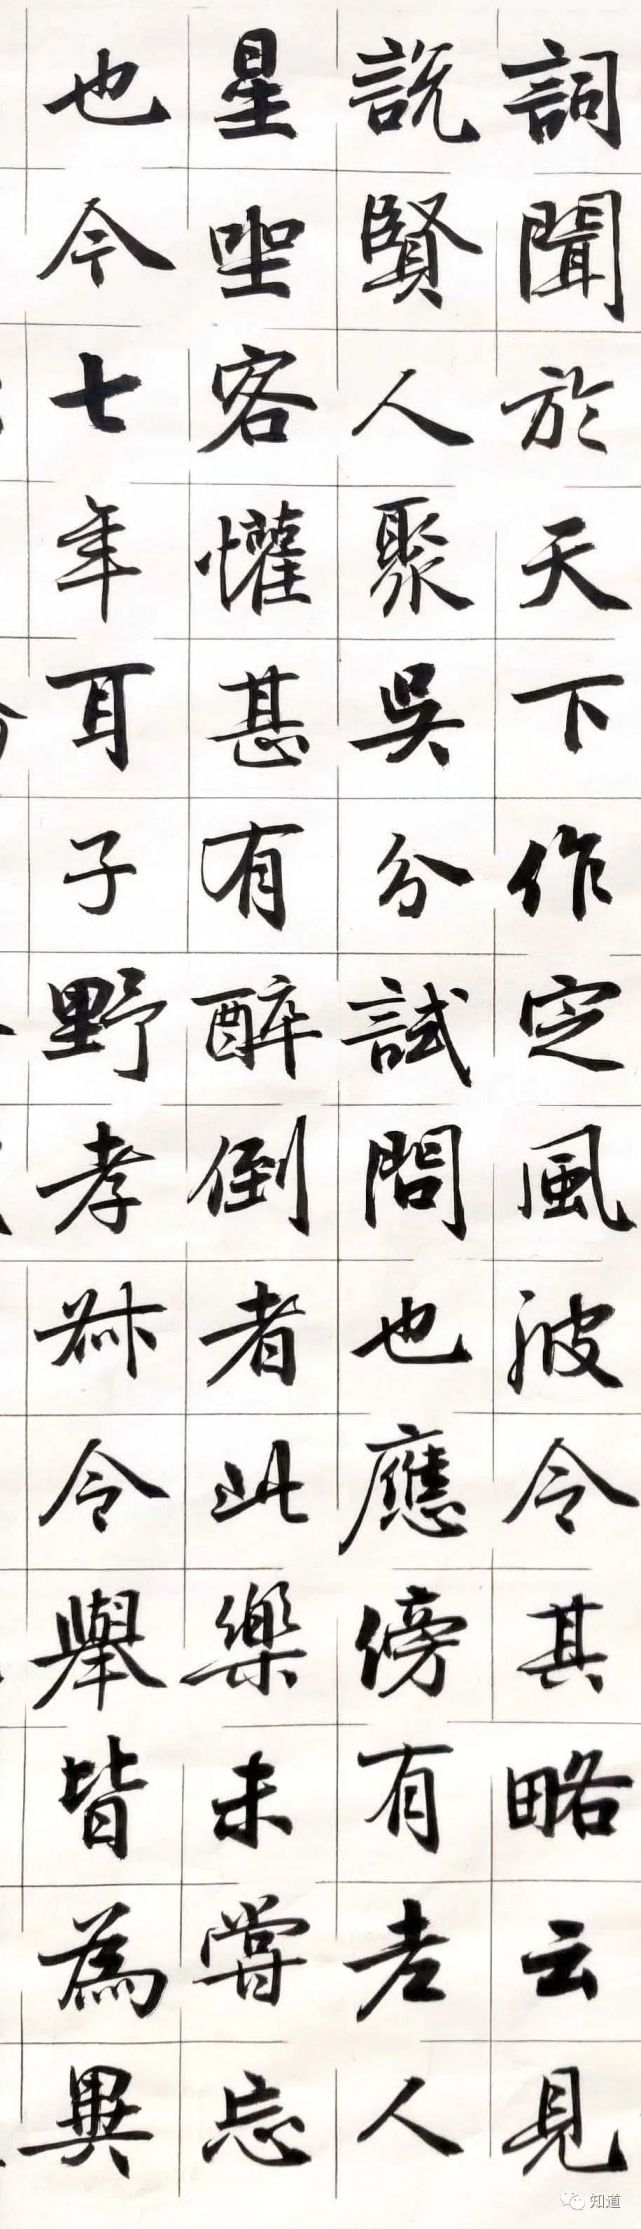 詞聞於天下作定風波令其略云見
説賢人聚吳分試問也應傍有老人
星坐客懽甚有醉倒者此樂未嘗忘
也今七年耳子野孝叔令舉皆為異
知道